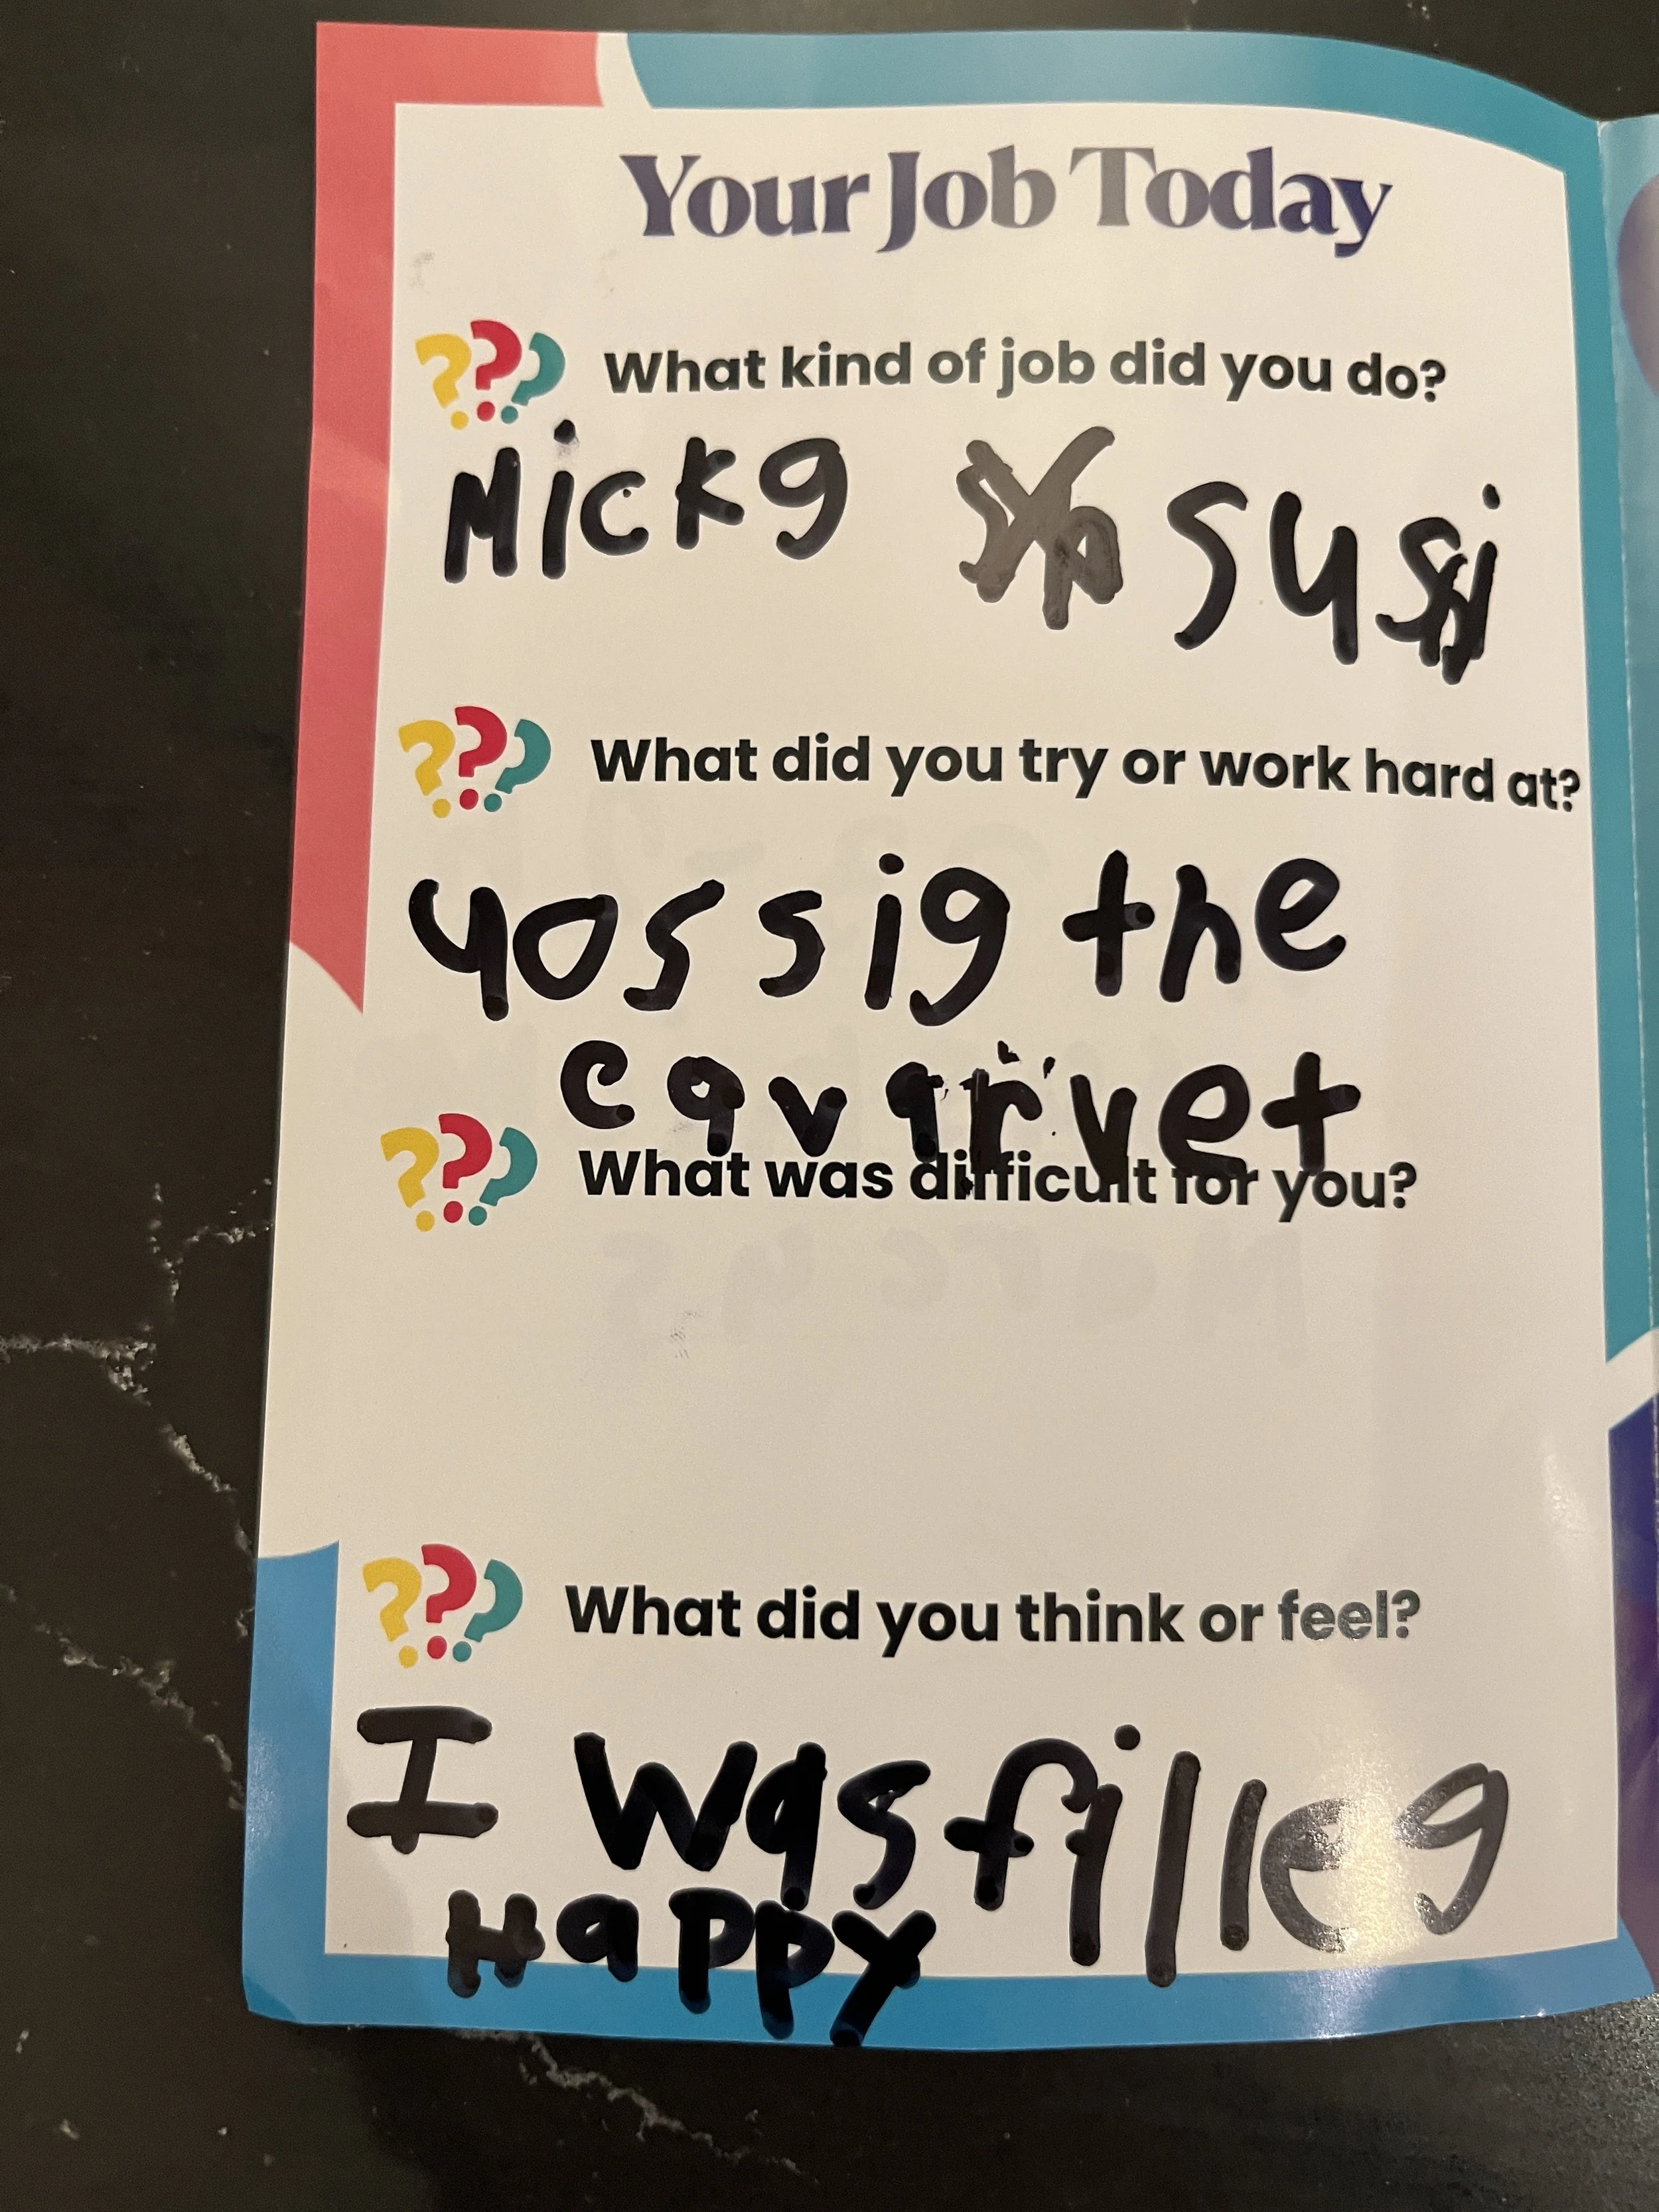 Your Job Today
??? What kind of job did you do?
Mickg susi
??? What did you try or work hard at?
yossig the
cavarvet
??? What was difficult for you?
??? What did you think or feel?
I was filleg
Happy